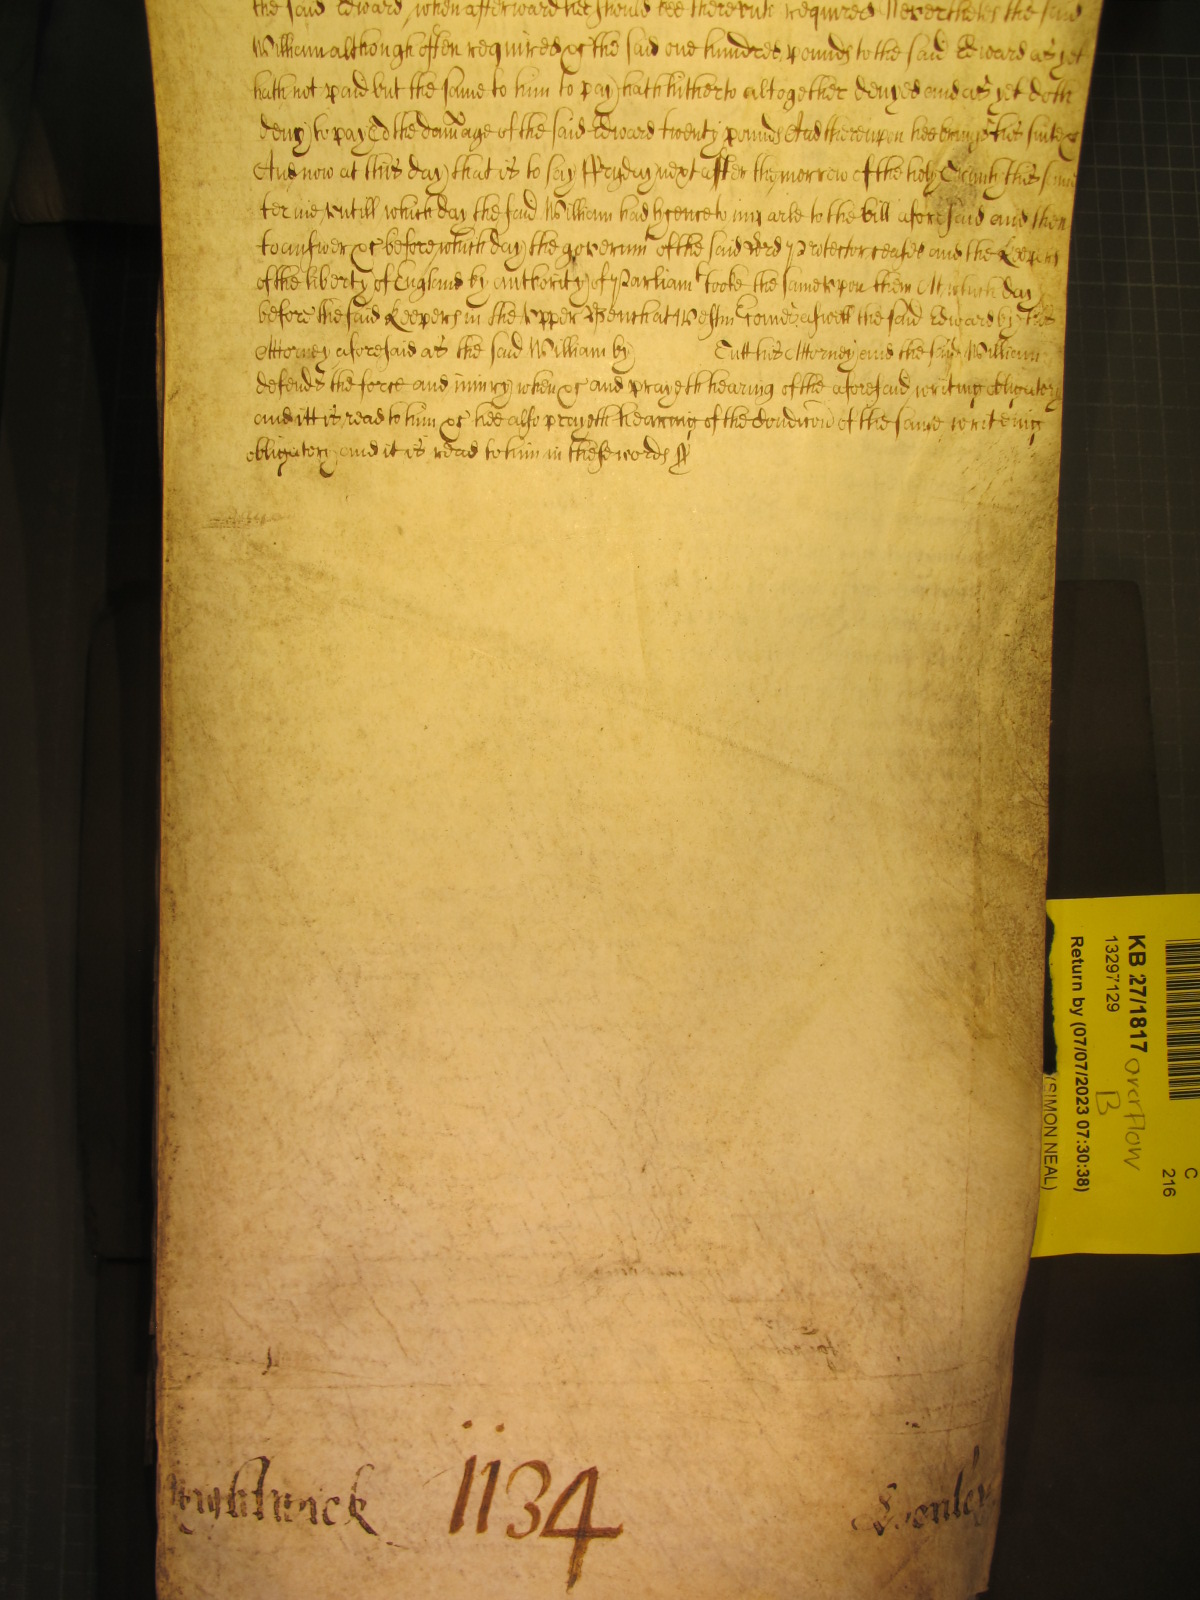 the said Edward when afterward hee should bee thereunto required Neverthelesse the said
William although often required &c the said one hundred pounds to the said Edward as yet
hath not paid but the same to him to pay hath hitherto altogether denyed and as yet doth
deny to pay To the damage of the said Edward twenty pounds And thereupon hee brings his suite &c
And now at this day that is to say ffryday next after the morrow of the holy Trinity this same
terme untill which day the said William had lycence to imparle to the bill aforesaid and then
to answer &c before which day the governmt of the said lord Protector ceased and the Keepers
of the liberty of England by authority of Parliamt tooke the same upon them At which day
before the said Keepers in the Upper Bench at Westm come aswell the said Edward by his
Attorney aforesaid as the said William by Tutt his Attorney and the said William
defends the force and iniury when &c and prayeth hearing of the aforesaid writing obligatory
and itt is read to him &c hee also prayeth hearing of the Condicon of the same writeing
obligatory and it is read to him in these words ss
1134
KB 27/1817 overflow
13297129 B
Return by (07/07/2023 07:30:38)
(SIMON NEAL)
C
216